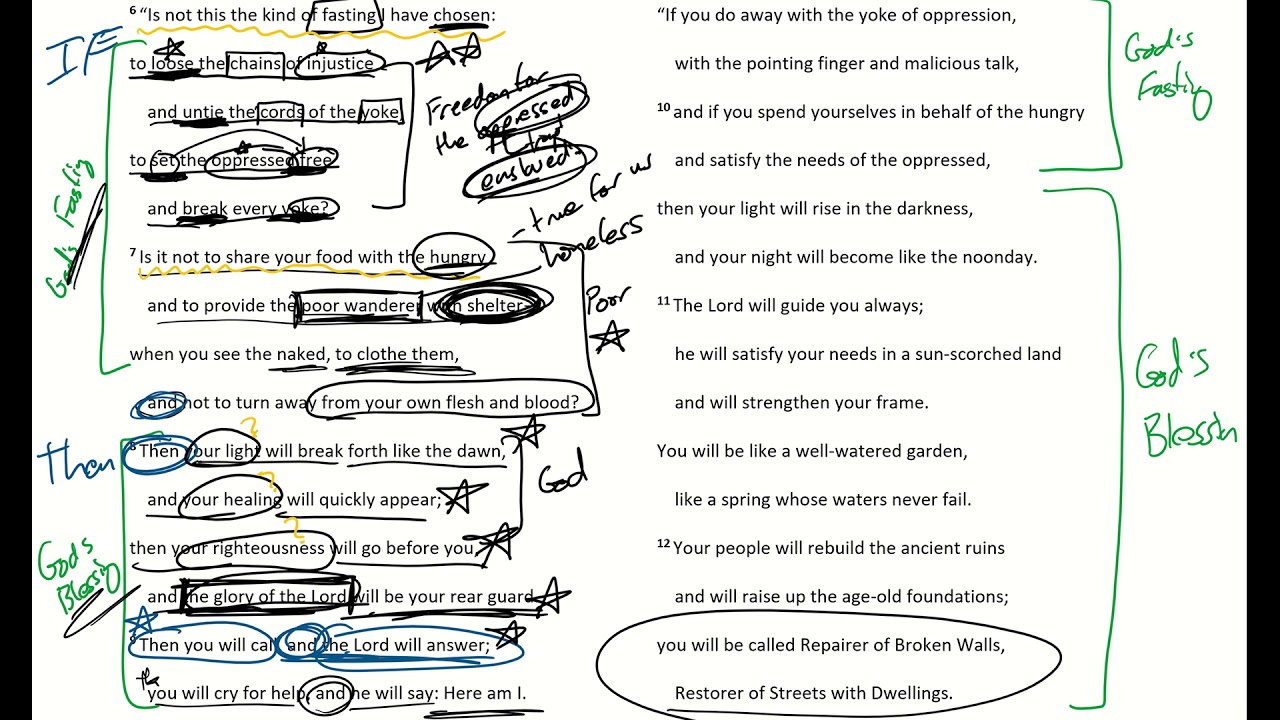 6 "Is not this the kind of fasting I have chosen:
to loose the chains of injustice
and untie the cords of the yoke,
to set the oppressed free
and break every yoke?
7 Is it not to share your food with the hungry
and to provide the poor wanderer with shelter—
when you see the naked, to clothe them,
and not to turn away from your own flesh and blood?
8 Then your light will break forth like the dawn,
and your healing will quickly appear;
then your righteousness will go before you,
and the glory of the Lord will be your rear guard.
9 Then you will call, and the Lord will answer;
you will cry for help, and he will say: Here am I.
IF
God's Fasting
Then
God's
Blessing
Freedom for
the oppressed
enslaved.
- true for us
homeless
Poor
God
? 
?
?
"If you do away with the yoke of oppression,
with the pointing finger and malicious talk,
10 and if you spend yourselves in behalf of the hungry
and satisfy the needs of the oppressed,
then your light will rise in the darkness,
and your night will become like the noonday.
11 The Lord will guide you always;
he will satisfy your needs in a sun-scorched land
and will strengthen your frame.
You will be like a well-watered garden,
like a spring whose waters never fail.
12 Your people will rebuild the ancient ruins
and will raise up the age-old foundations;
you will be called Repairer of Broken Walls,
Restorer of Streets with Dwellings.
God's
Fasting
God's
Blessin